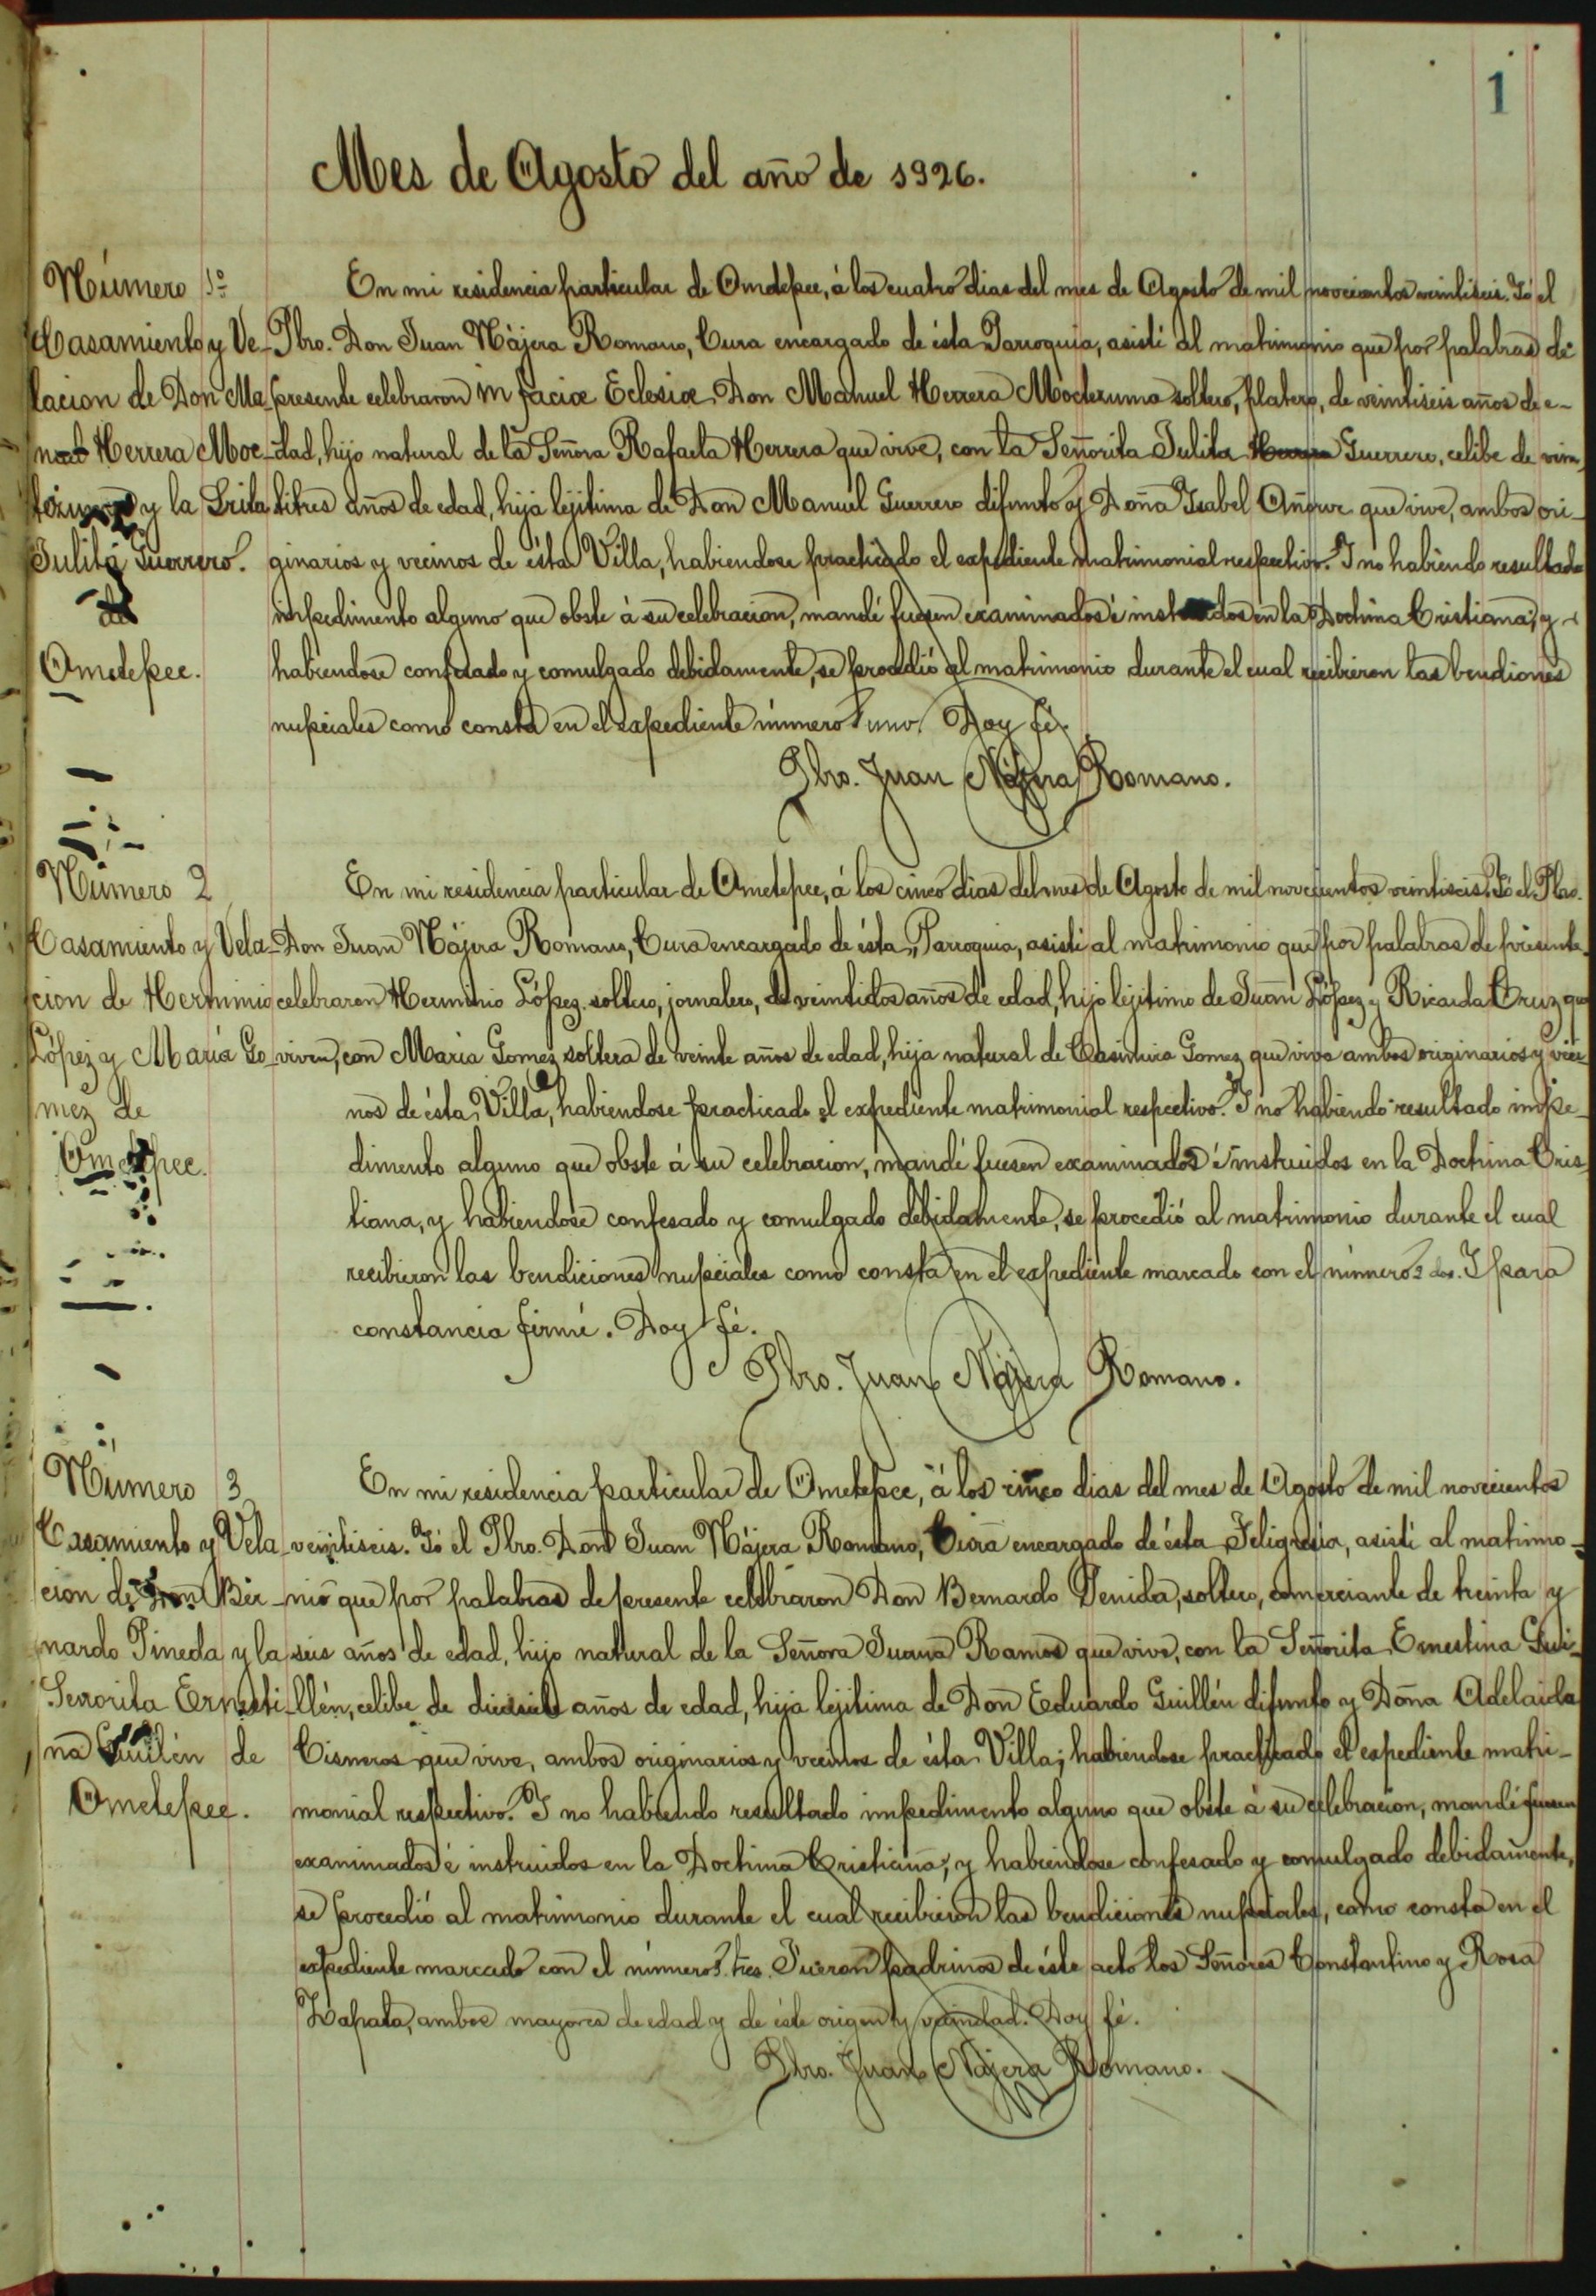 1
Mes de Agosto del año de 1926.
Número 1º
Casamiento y Ve-
lacion de Don Ma-
nuel Herrera Moc-
tezuma y la Srita
Julita Guerrero.
de
Ometepec.
En mi residencia particular de Ometepec, á los cuatro dias del mes de Agosto de mil novecientos veintiseis. Yó el
Pbro. Don Juan Nájera Romano, Cura encargado de ésta Parroquia, asistí al matrimonio que por palabras de
presente celebraron in faciæ Eclesiæ Don Manuel Herrera Moctezuma soltero, platero, de veintiseis años de e-
dad, hijo natural de la Señora Rafaela Herrera que vive, con la Señorita Julita Guerrero, celibe de vein-
titres años de edad, hija lejitima de Don Manuel Guerrero difunto y Doña Ysabel Añorve que vive, ambos ori-
ginarios y vecinos de ésta Villa, habiendose practicado el expediente matrimonial respectivo. Y no habiendo resultado
impedimento alguno que obste á su celebracion, mandé fuesen examinados é instruidos en la Doctrina Cristiana; y
habiendose confesado y comulgado debidamente, se procedió al matrimonio durante el cual recibieron las bendiones
nupciales como consta en el expediente número 1 uno. Doy fé.
Pbro. Juan Nájera Romano.
Número 2
Casamiento y Vela-
cion de Herminio
López y María Go-
mez de
Ometepec.
En mi residencia particular de Ometepec, á los cinco dias del mes de Agosto de mil novecientos veintiseis. Yó el Pbro.
Don Juan Nájera Romano, Cura encargado de ésta Parroquia, asistí al matrimonio que por palabras de presente
celebraron Herminio López soltero, jornalero, de veintidos años de edad, hijo lejitimo de Juan López y Ricarda Cruz que
viven, con María Gomez soltera de veinte años de edad, hija natural de Casimira Gomez que vive ambos originarios y veci-
nos de ésta Villa, habiendose practicado el expediente matrimonial respectivo. Y no habiendo resultado impe-
dimento alguno que obste á su celebracion, mandé fuesen examinados é instruidos en la Doctrina Cris-
tiana, y habiendose confesado y comulgado debidamente, se procedió al matrimonio durante el cual
recibieron las bendiciones nupciales como consta en el expediente marcado con el número 2 dos. Y para
constancia firmé. Doy fé.
Pbro. Juan Nájera Romano.
Número 3
Casamiento y Vela-
cion de Don Ber-
nardo Pineda y la
Señorita Ernesti-
na Guillén de
Ometepec.
En mi residencia particular de Ometepec, á los cinco dias del mes de Agosto de mil novecientos
veintiseis. Yó el Pbro. Don Juan Nájera Romano, Cura encargado de ésta Feligresía, asistí al matrimo-
nio que por palabras de presente celebraron Don Bernardo Penida, soltero, comerciante de treinta y
seis años de edad, hijo natural de la Señora Juana Ramos que vive, con la Señorita Ernestina Gui-
llén, celibe de diesisiete años de edad, hija lejitima de Don Eduardo Guillén difunto y Doña Adelaida
Cisneros que vive, ambos originarios y vecinos de ésta Villa; habiendose practicado el expediente matri-
monial respectivo. Y no habiendo resultado impedimento alguno que obste á su celebracion, mandé fuesen
examinados é instruidos en la Doctrina Cristiana, y habiendose confesado y comulgado debidamente,
se procedió al matrimonio durante el cual recibieron las bendiciones nupciales, como consta en el
expediente marcado con el número 3. tres. Fueron padrinos de éste acto los Señores Constantino y Rosa
Zapata, ambos mayores de edad y de éste origen y vecindad. Doy fé.
Pbro. Juan Nájera Romano.